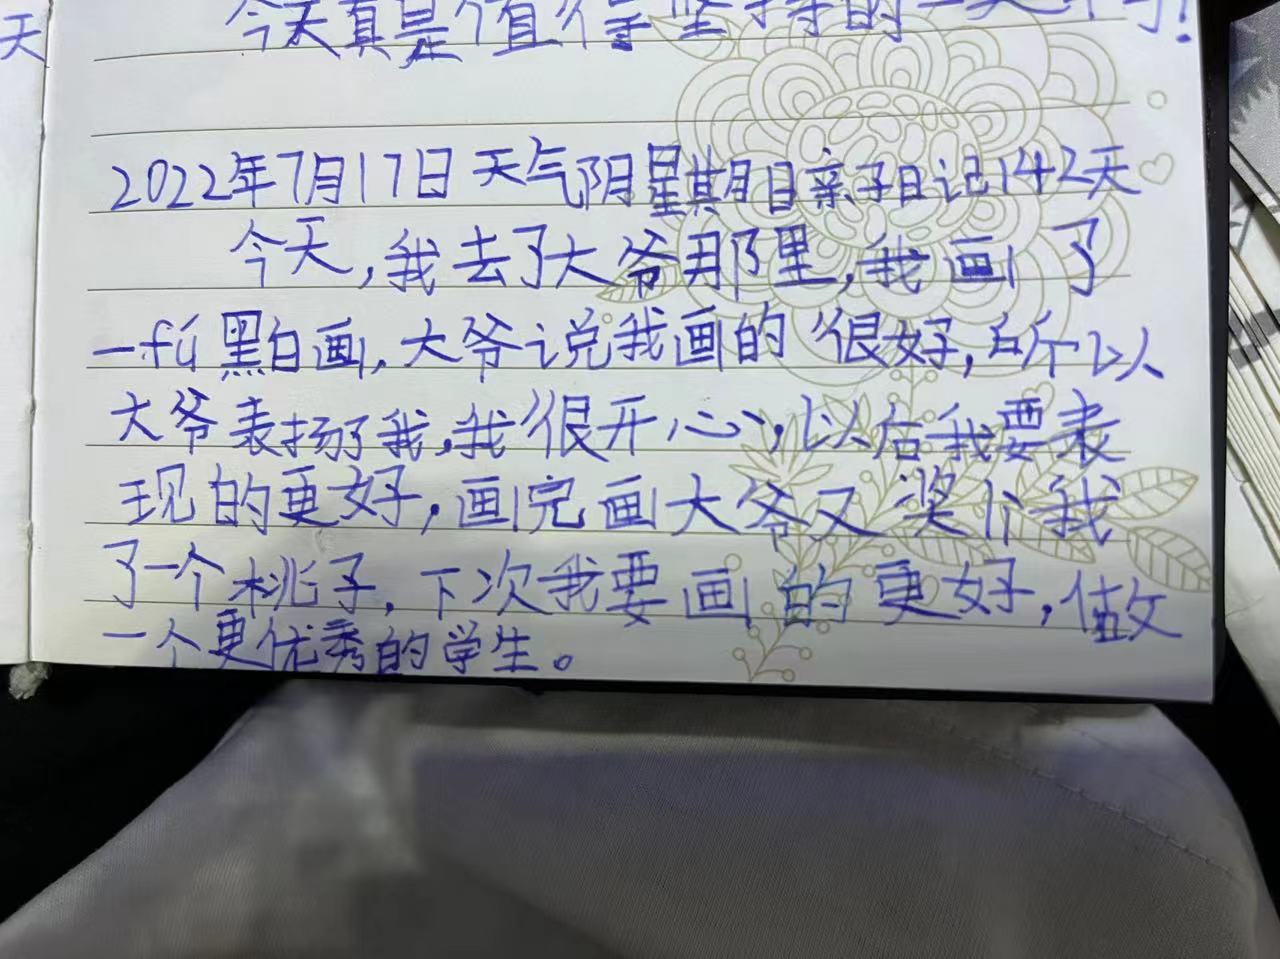 天
今天真是值得坚持的一天
2022年7月17日 天气阴星期日亲子日记142天
今天,我去了大爷那里,我画了
一fú黑白画,大爷说我画的很好,所以
大爷表扬了我,我很开心,以后我要表
现的更好,画完画大爷又奖个我
了一个桃子,下次我要画的更好,做
一个更优秀的学生。